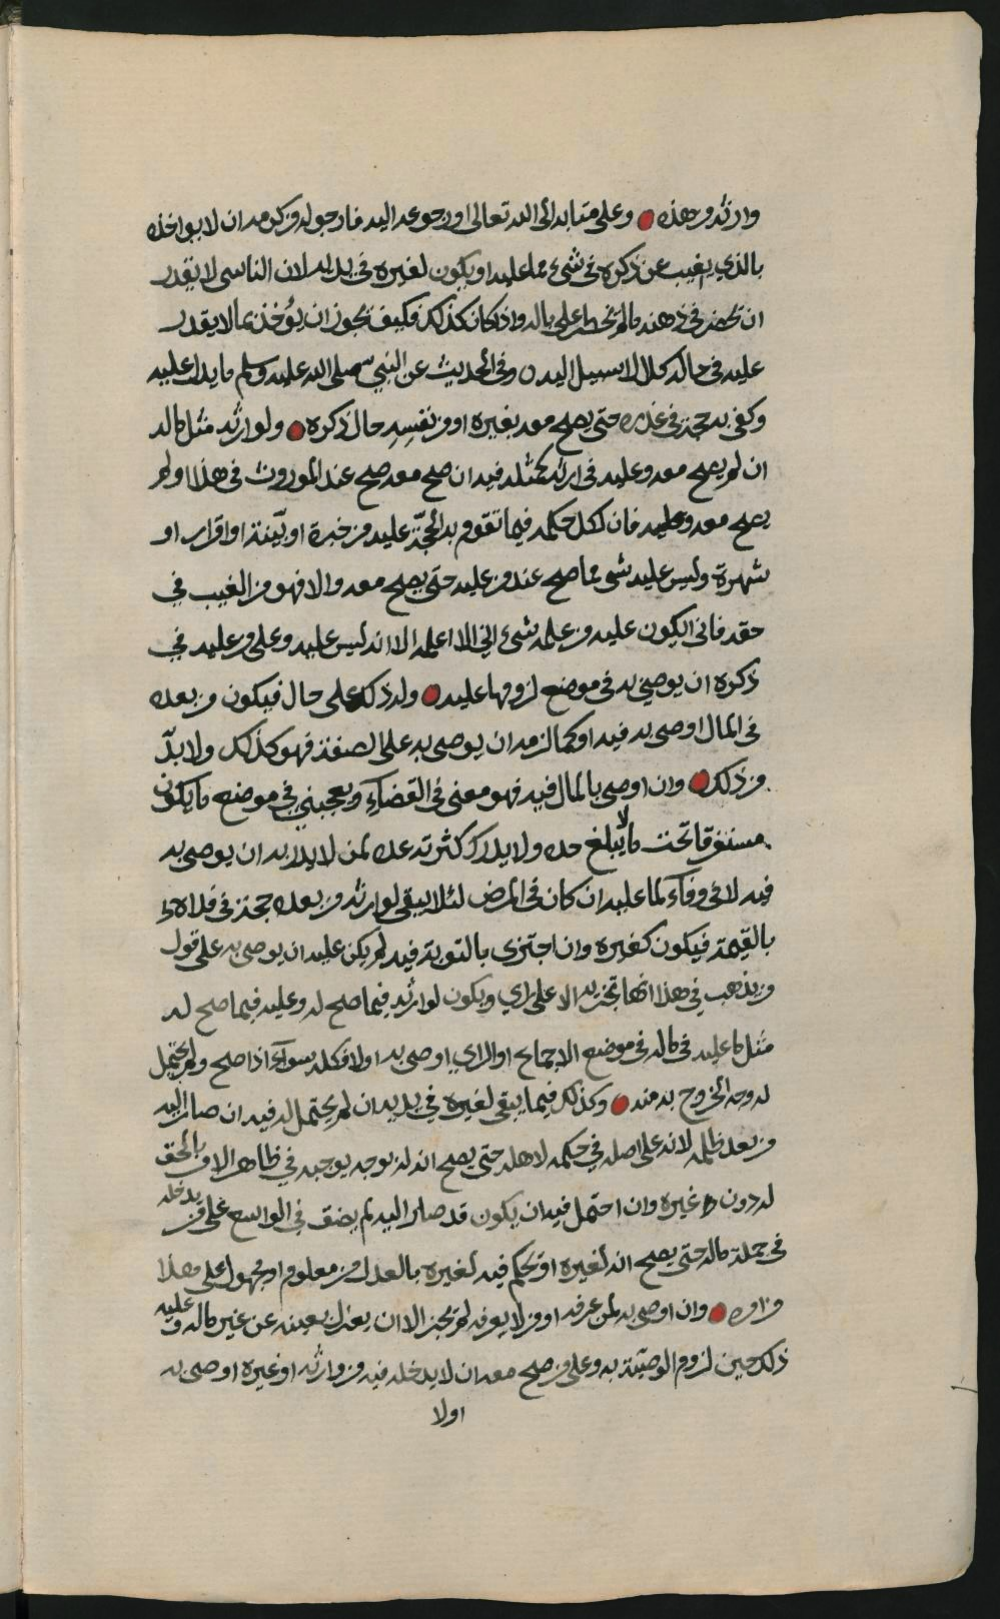 وارثه ومن هذه وعلى متابه الى الله تعالى او رجوعه اليه فارجو له من كرمه ان لا يواخذه
بالذي يغيب عن ذكره في شيء مما عليه او يكون لغيره في يديه لان الناسي لا يقدر
ان يحضر في ذهنه ما لم يخطر على باله واذا كان كذلك فكيف يجوز ان يؤخذ بما لا يقدر
عليه في حاله كلا لا سبيل اليه وفي الحديث عن النبي صلى الله عليه وسلم ما يدل عليه
وكفى به حجة في عذره حتى يصح معه بغيره او من نفسه حال ذكره ولوارثه مثل ماله
ان لم يصح معه وعليه في ارثه كمثله فيه ان صح معه صح عند الموروث في هذا او لم
يصح معه وعليه فان لكل حكمه فيما تقوم به الحجة عليه من خبرة او بينة او اقرار او
شهرة وليس عليه شي مما صح عند من عليه حتى يصح معه والا فهو من الغيب في
حقه فانى يكون عليه من علمه شيء اني لا اعلمه الا انه ليس عليه وعلى من عليه في
ذكره ان يوصي به في موضع لزومها عليه وله ذلك على حال فيكون من بعده
في المال اوصى به فيه او كما لزمه ان يوصى به على الصفة فهو كذلك ولا بد
من ذلك وان اوصى بالمال فيه فهو معنى في القضاء ويعجبني في موضع ما يكون
مستغرقا تحت ما لا يبلغ حده ولا يدرك كثرته عده لمن لا يدا به ان يوصى به
فيه لا في وفاء لما عليه ان كان في المرض لئلا يبقى لوارثه من بعده حجة في فداه
بالقيمة فيكون كغيره وان اجتزى بالتوبة فيه لم يكن عليه ان يوصى به على قول
من يذهب في هذا انها تجزيه الا على راي ويكون لوارثه فيما صح له وعليه فيما صح له
مثل ما عليه في ماله في موضع الاجماع او الراي اوصى به اولا فكله سواء اذا صح ولم يحتمل
له وجه الخروج به منه وكذلك فيما يبقى لغيره في يديه ان لم يحتمل له فيه ان صار اليه
من بعد ظلمه لانه على اصله في حكمه لاهله حتى يصح انه له بوجه يوجبه في ظاهر الامر بالحق
له دون غيره وان احتمل فيه ان يكون قد صار اليه لم يضق في الواسع على من يدخله
في جملة ماله حتى يصح انه لغيره او يحكم فيه لغيره بالعدل من معلوم او مجهول على هذا
من امره وان اوصى به لمن عرفه او من لا يعرفه لم يجز الا ان يعزل بعينه عن غير ماله وعليه
ذلك حين لزوم الوصية به وعلى من صح معه ان لا يدخله فيه من وارثه او غيره اوصى به
اولا